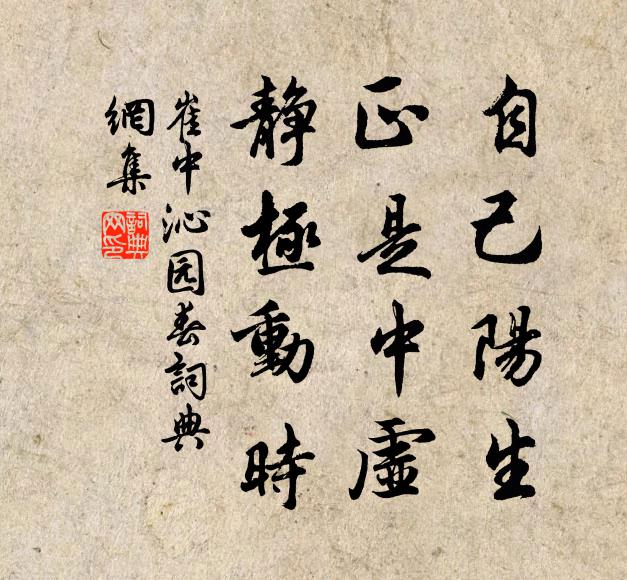 自己陽生
正是中虛
靜極動時
崔中沁园春詞典
網集
詞典
网印